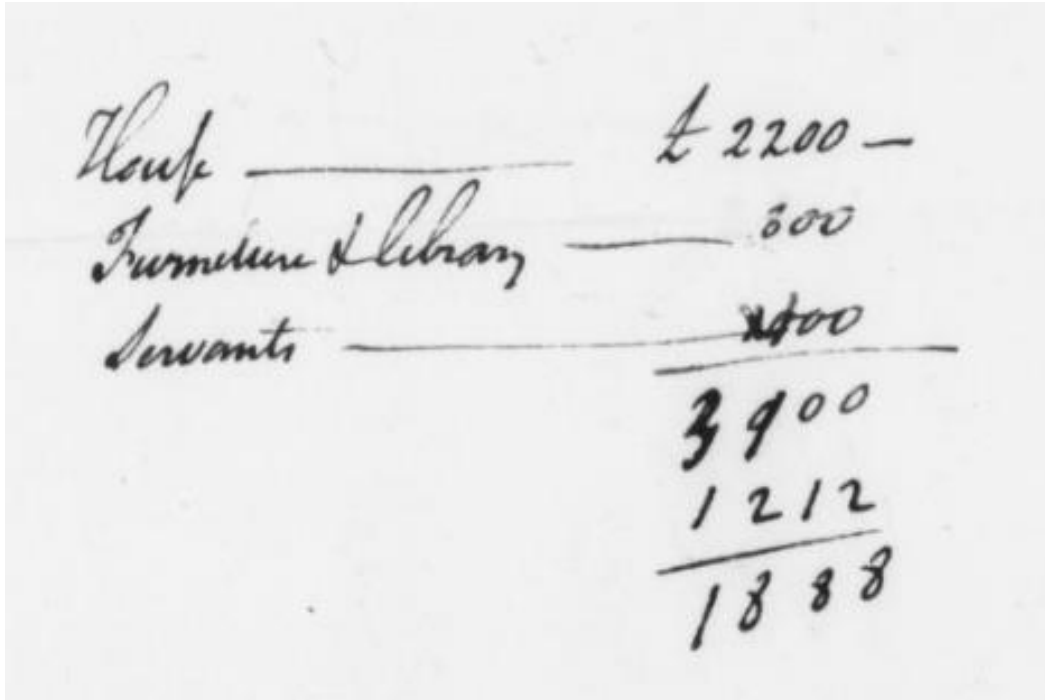 Houſe — £ 2200 —
Furniture & library —
Servants —
1212
1888